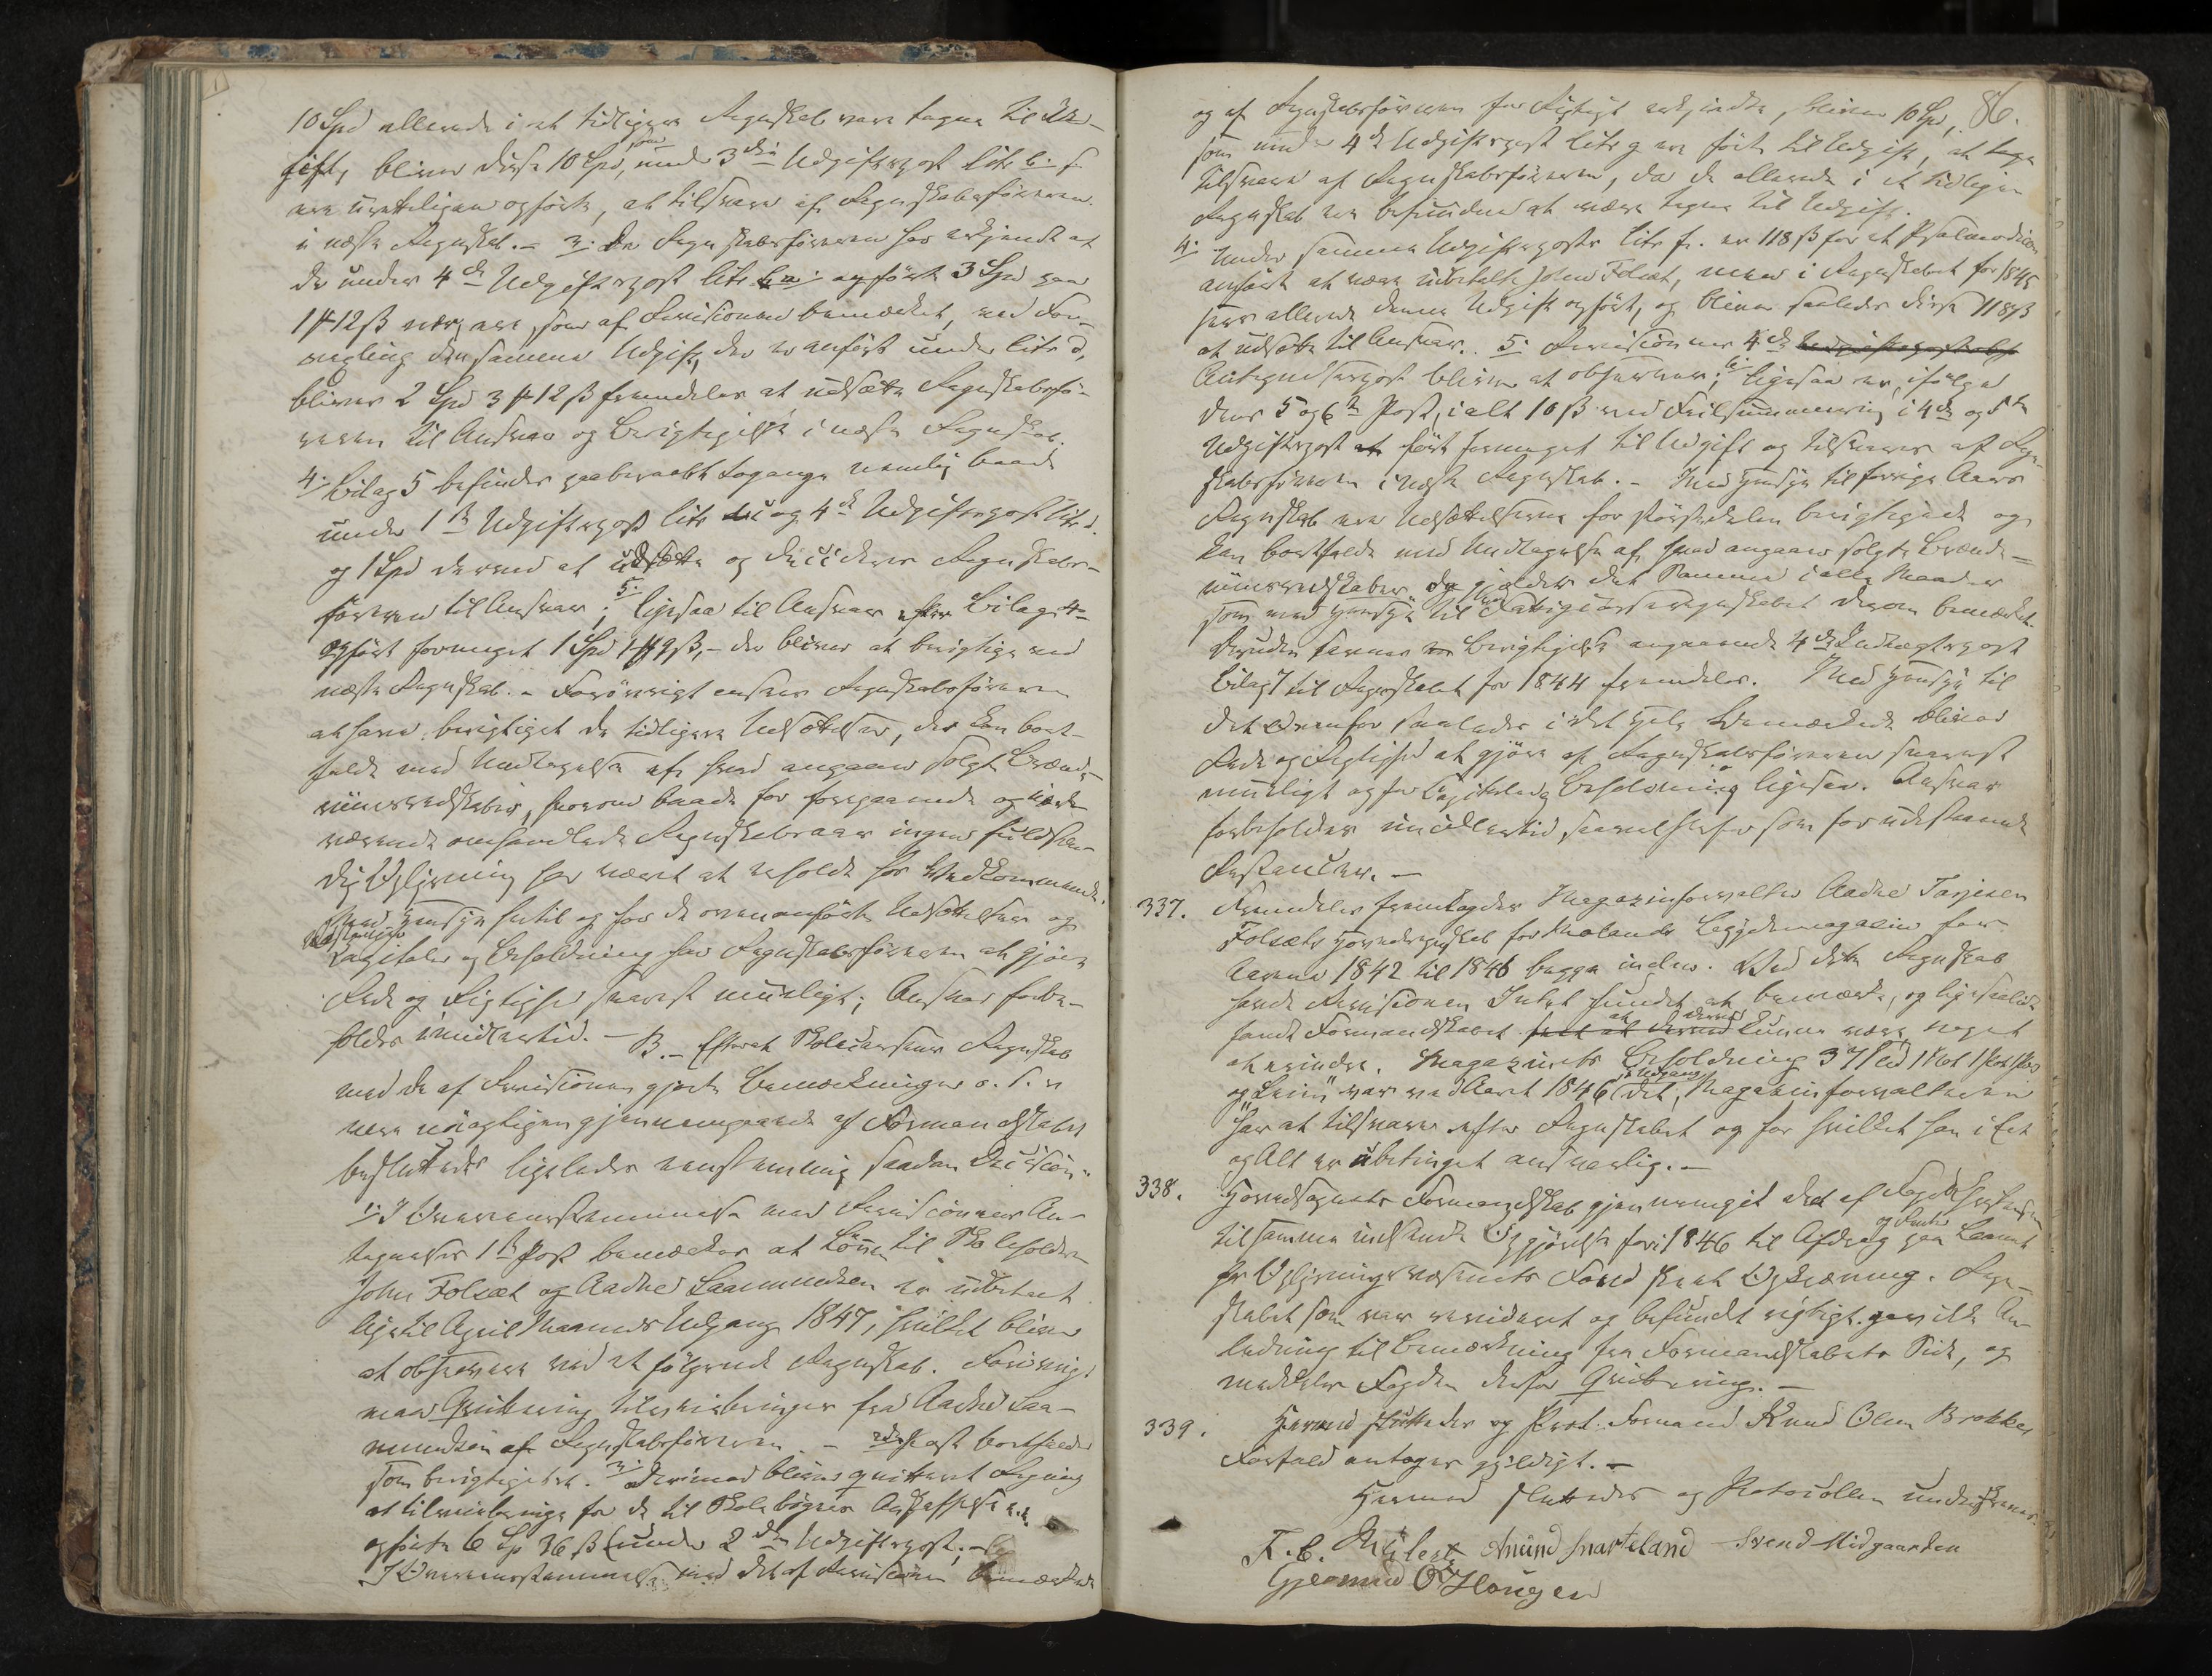 10 Spd allerede i et tidligere Regnskab være tagne til Ud-
gift, bliver disse 10 Spd, som under 3die Udgiftspost Litr b. f.
ere uretteligen opførte, at tilsvare af Regnskabsføreren
i næste Regnskab. – 3. Da Regnskabsføreren har erkjendt at
de under 4de Udgiftspost litr opførte 3 Spd paa
1 # 12 ß nær, ere, som af Revisionen bemærket, ved For-
vexling den samme Udgift, der er anført under litr d,
bliver 2 Spd 3 # 12 ß fremdeles at udsætte Regnskabsfø-
reren til Ansvar og Berigtigelse i næste Regnskab.
4. Bilag 5 befindes paaberaabt togange nemlig baade
under 1ste Udgiftspost litr i og 4de Udgiftspost litr d.
og 1 Spd derved at udsætte og decideres Regnskabs-
føreren til Ansvar; 5. ligesaa til Ansvar efter Bilag 4
opført formeget 1 Spd 1 # 9 ß, – der bliver at berigtige ved
næste Regnskab. – Forøvrigt ansees Regnskabsføreren
at have berigtiget de tidligere Udsættelser, der kan bort-
falde med Undtagelse af hvad angaaer solgte Brænde-
viinsredskaber, hvorom baade for foregaaende og nær-
værende omhandlede Regnskabsaar ingen fuldstæn-
dig Oplysning har været at erholde hos Vedkommende.
Med Hensyn hertil og for de ovenanførte Udsættelser og
Capitaler og Beholdning har Regnskabsføreren at gjøre
Rede og Rigtighed snarest mueligt; Ansvar forbe-
holdes imidlertid. – B. – Efterat Skolecassens Regnskab
med de af Revisionen gjorte Bemærkninger o. s. v.
vare nøiagtigen gjennemgaaede af Formandskabet
besluttedes ligeledes eenstemmig saadan Decision:
1. I Overeensstemmelse med Revisionens An-
tegnelser 1ste Post bemærkes at Løn til Skoleholder
John Folsæt og Aadne Saamundsen er udbetalt
lige til April Maaneds Udgang 1847, hvilket bliver
at observere ved et følgende Regnskab. Forøvrigt
maa Qvittering tilveiebringes fra Aadne Saa-
mundsen af Regnskabsføreren. – 2den Post bortfalder
som berigtiget. 3. Derimod bliver qvitteret Regning
at tilveiebringe for de til Skolebøgers Anskaffelse
opførte 6 Sp 36 ß under 2den Udgiftspost. –
I Overeensstemmelse med det af Revisionen bemærkede
og af Regnskabsføreren for Rigtigt erkjendte, blive 10 Spd, 86.
som under 4de Udgiftspost litr g ere førte til Udgift, at tage
Tilsvare af Regnskabsføreren, da de allerede i et tidligere
Regnskab ere befundne at være tagne til Udgift.
4. Under samme Udgiftspost litr h. er 118 ß for et Psalmodicon
anført at være udbetalt John Folsæt, men i Regnskabet for 1845
sees allerede denne Udgift opført, og bliver saaledes disse 118 ß
at udsætte til Ansvar. 5. Revisionens 4de
Antegnelsespost bliver at observere; 6. ligesaa er, ifølge
dens 5 og 6te Post, ialt 10 ß ved Feilsummering i 4de og 5te
Udgiftspost ført formeget til Udgift og tilsvares af Regn-
skabsføreren i næste Regnskab. – Med Hensyn til forrige Aars
Regnskab ere Udsættelserne for størstedelen berigtigede og
kan bortfalde med Undtagelse af hvad angaaer solgte Brænde-
viinsredskaber, da gjælder det Samme i alle Maader
som med Hensyn til Fattigcasseregnskabet derom bemærket.
Desuden savnes Berigtigelse angaaende 4de Indtægtspost
Bilag 7 til Regnskabet for 1844 fremdeles. Med Hensyn til
det Ovenfor saaledes i det Hele Bemærkede bliver
Rede og Rigtighed at gjøre af Regnskabsføreren snarest
mueligt og for Capitaler og Beholdning ligesaa. Ansvar
forbeholdes imidlertid saavel herfor som for udestaaende
Restancer. –
337. Fremdeles fremlagdes Magazinforvalter Aadne Tarjesen
Folsæts Hovedregnskab for Molands Bygdemagazin for
Aarene 1842 til 1846 begge inclus. Ved dette Regnskab
havde Revisionen Intet fundet at bemærke, og ligesaalidt
fandt Formandskabet at derved kunne være noget
at erindre. Magazinets Beholdning 37
og var ved Aaret 1846 Udgang det, Magazinforvalteren
har at tilsvare efter Regnskabet og for hvilket han i Eet
og Alt er ubetinget ansvarlig. –
338. Hovedsognets Formandskab gjennemgik det af Fogden
tilsammen indsendte Opgjørelse for 1846 til Afdrag og Rente paa Laanet
for Oplysningsvæsenets Fond samt Opkrævning. Regn-
skabet som var revideret og befundet rigtigt gav ikke An-
ledning til Bemærkning fra Formandskabets Side, og
meddeles Fogden derfor Qvittering. –
339. Hermed sluttedes og Prot. Formand Knud Olsen Brokkes
Forfald antoges gyldigt. –
Hermed sluttedes og Protocollen underskreves.
Anund Svarteland Svend Midgaarden
Gjermund O Hougen